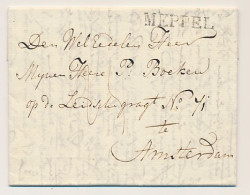 MEPPEL
Den WelEdelen Heer
Mynen Heere P. Boeken
op de Leidschegragt No 71
te
Amsterdam